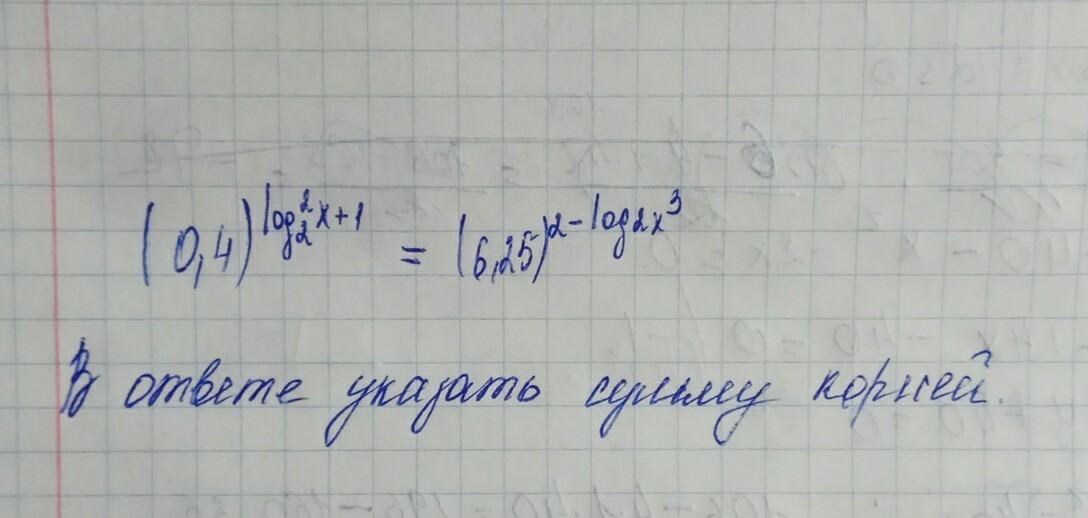 (0,4)^{log₂²x+1} = (6,25)^{2-log₂x³}
В ответе указать сумму корней.